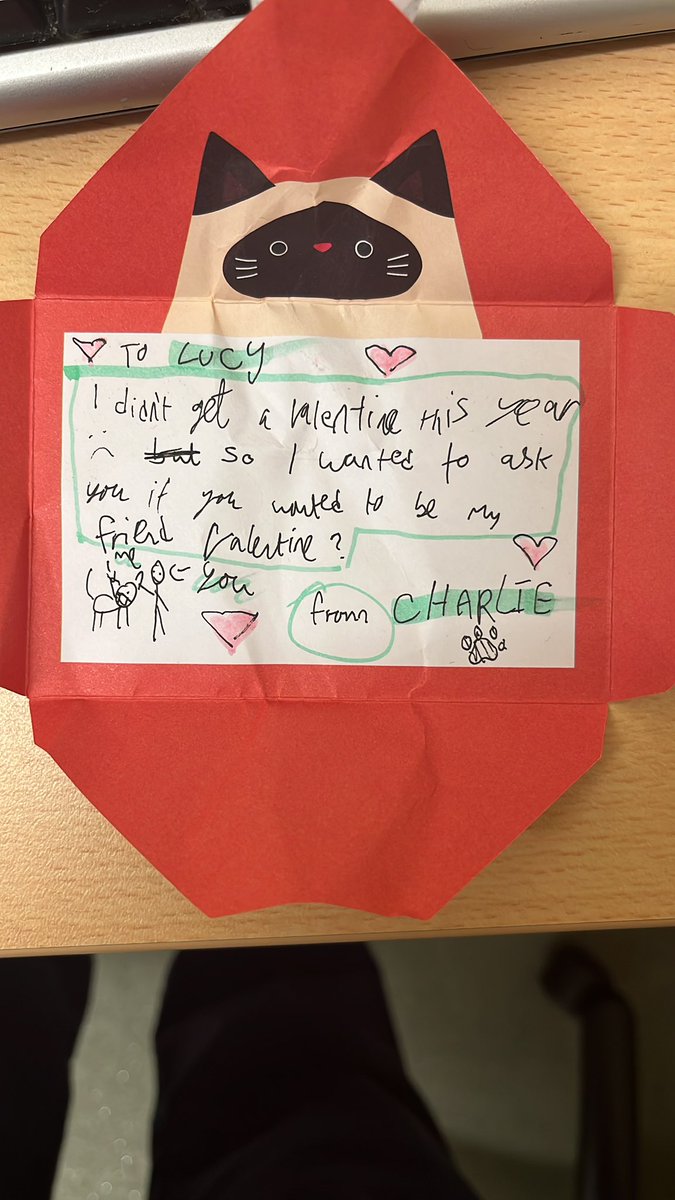 TO LUCY
I didn't get a valentine this year
:( but so I wanted to ask
you if you wanted to be my
friend Valentine?
me
you
from CHARLIE